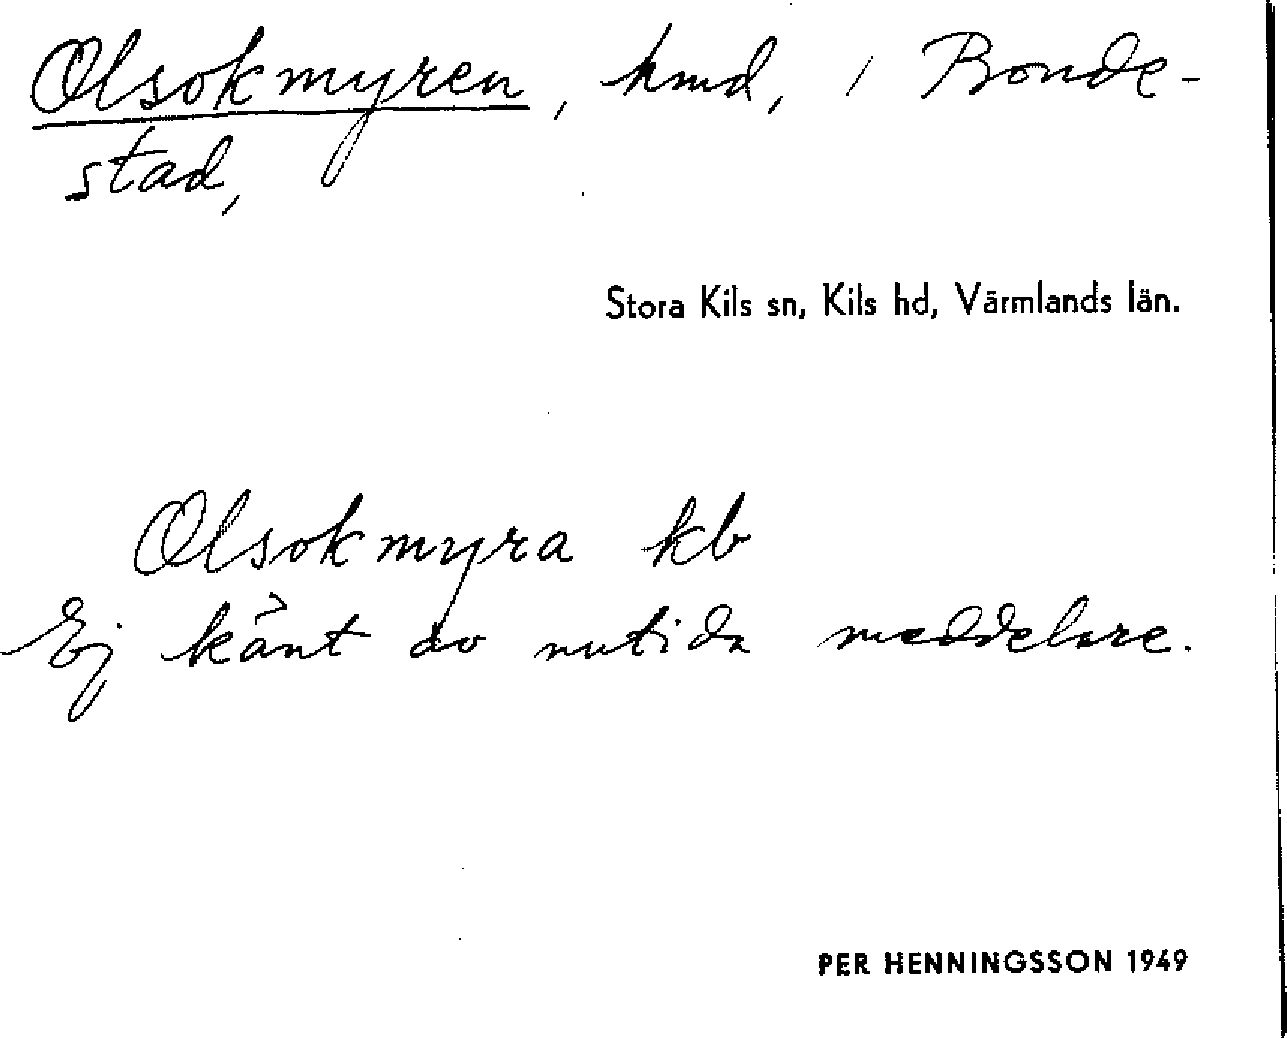 Olsokmyren, hmd, i Bonde-
stad,
Stora Kils sn, Kils hd, Värmlands län.
Olsokmyra kb
Ej känt av nutida meddelare.
PER HENNINGSSON 1949